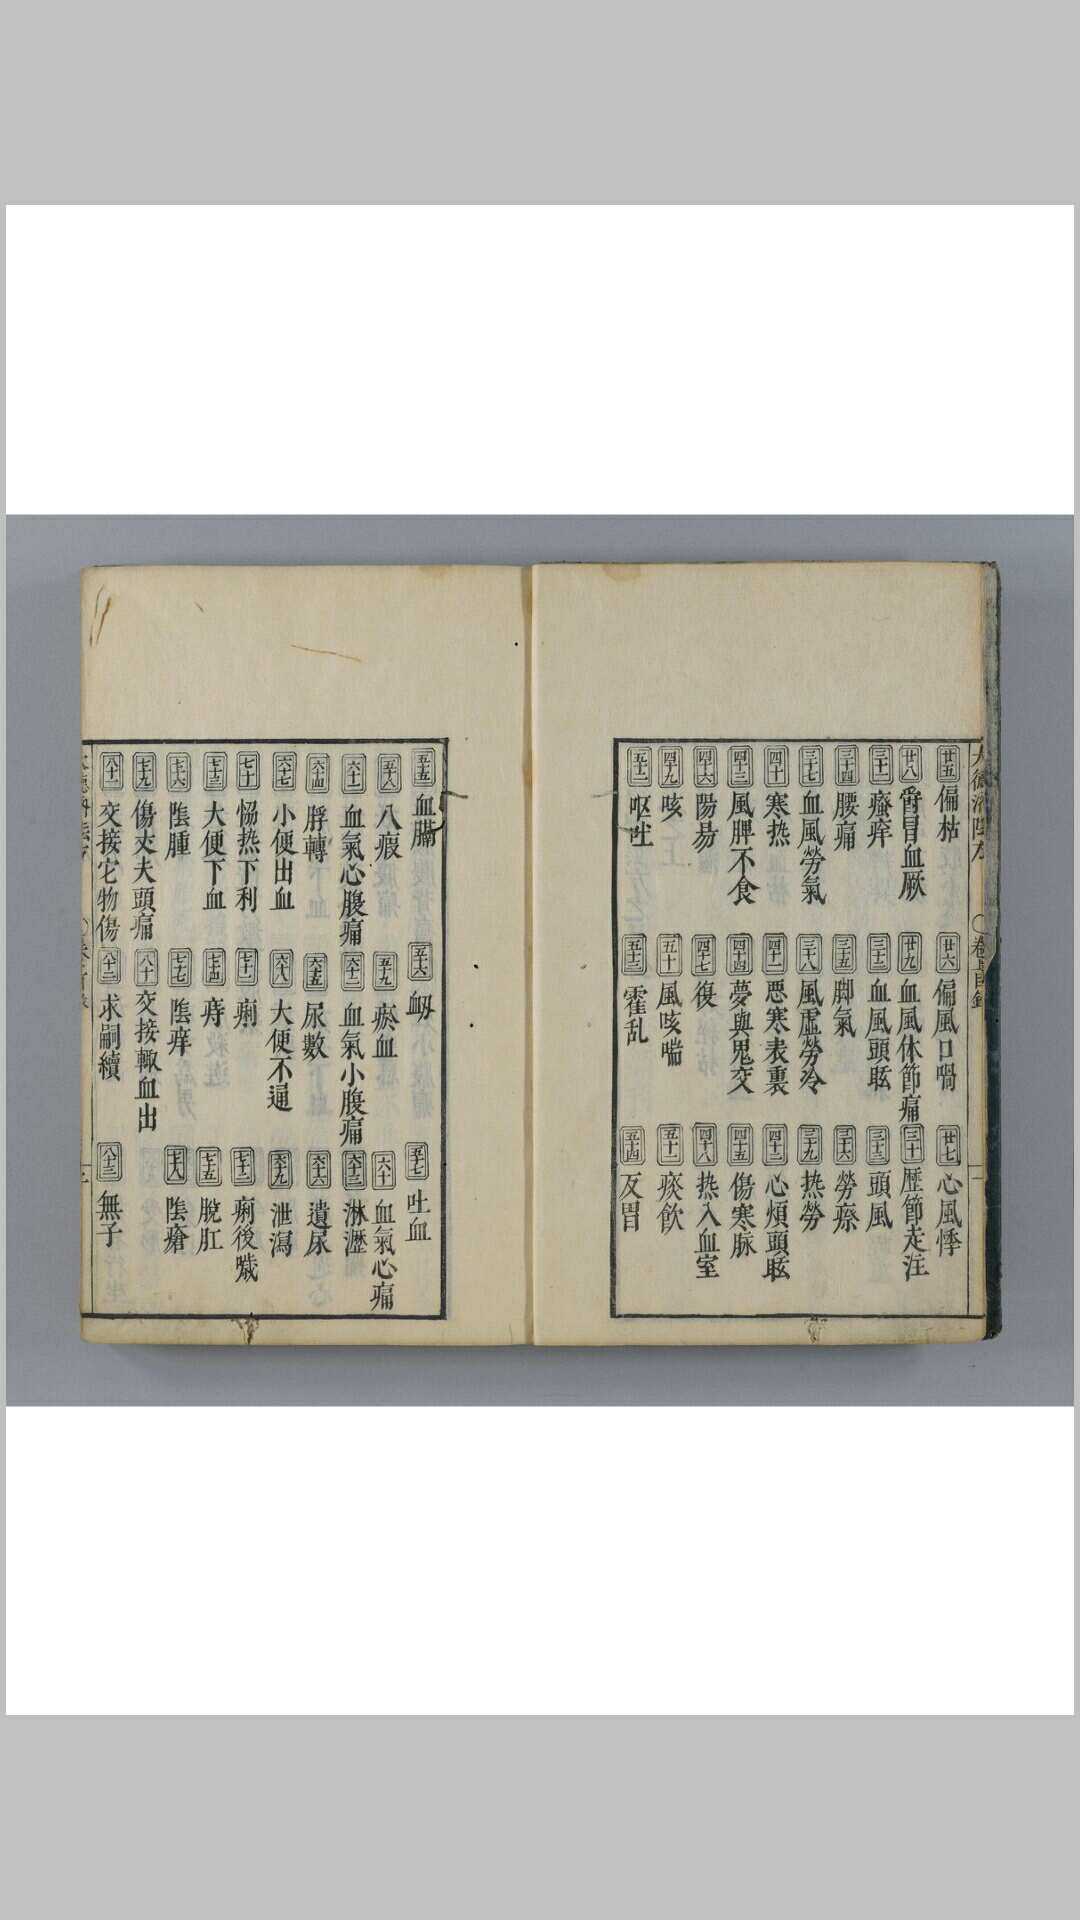 廿五 偏枯 廿六 偏風口喎 廿七 心風悸
廿八 欝冒血厥 廿九 血風体節痛 三十 歷節走注
三十一 癮痒 三十二 血風頭眩 三十三 頭風
三十四 腰痛 三十五 脚氣 三十六 勞瘵
三十七 血風勞氣 三十八 風虛勞冷 三十九 热勞
四十 寒热 四十一 悪寒表裏 四十二 心煩頭眩
四十三 風脾不食 四十四 夢與鬼交 四十五 傷寒脉
四十六 陽昜 四十七 復 四十八 热入血室
四十九 咳 五十 風咳喘 五十一 痰飲
五十二 呕吐 五十三 霍乱 五十四 反胃
五十五 血膈 五十六 衂 五十七 吐血
五十八 八瘕 五十九 瘀血 六十 血氣心痛
六十一 血氣心腹痛 六十二 血氣小腹痛 六十三 淋瀝
六十四 脬轉 六十五 尿數 六十六 遺尿
六十七 小便出血 六十八 大便不通 六十九 泄瀉
七十 恊热下利 七十一 痢 七十二 痢後噦
七十三 大便下血 七十四 痔 七十五 脫肛
七十六 陰腫 七十七 陰痒 七十八 陰瘡
七十九 傷丈夫頭痛 八十 交接輙血出
八十一 交接它物傷 八十二 求嗣續 八十三 無子